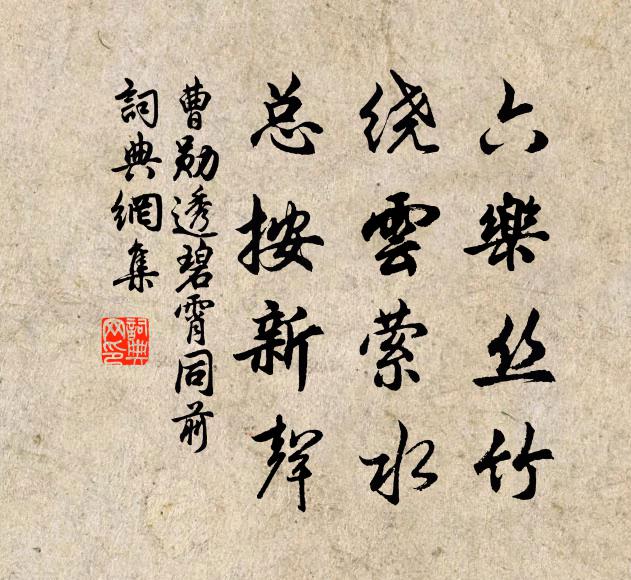 六樂丝竹
绕雲萦水
总按新聲
曹勋透碧霄同前
詞典網集
詞典网印